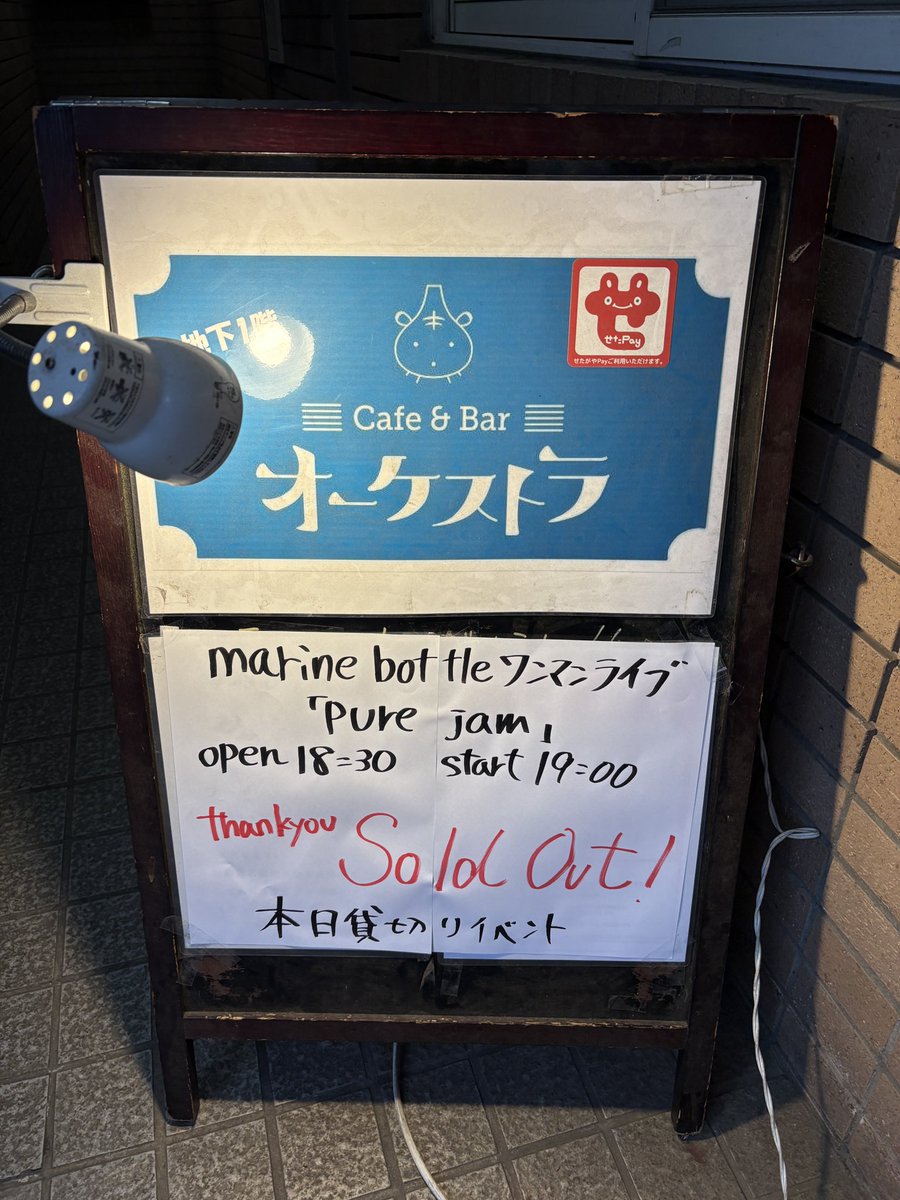 地下1階
せたPay
せたがやPayご利用いただけます。
Cafe & Bar
オーケストラ
marine bottleワンマンライブ
「pure jam」
open 18:30 start 19:00
thankyou Sold Out!
本日貸切りイベント